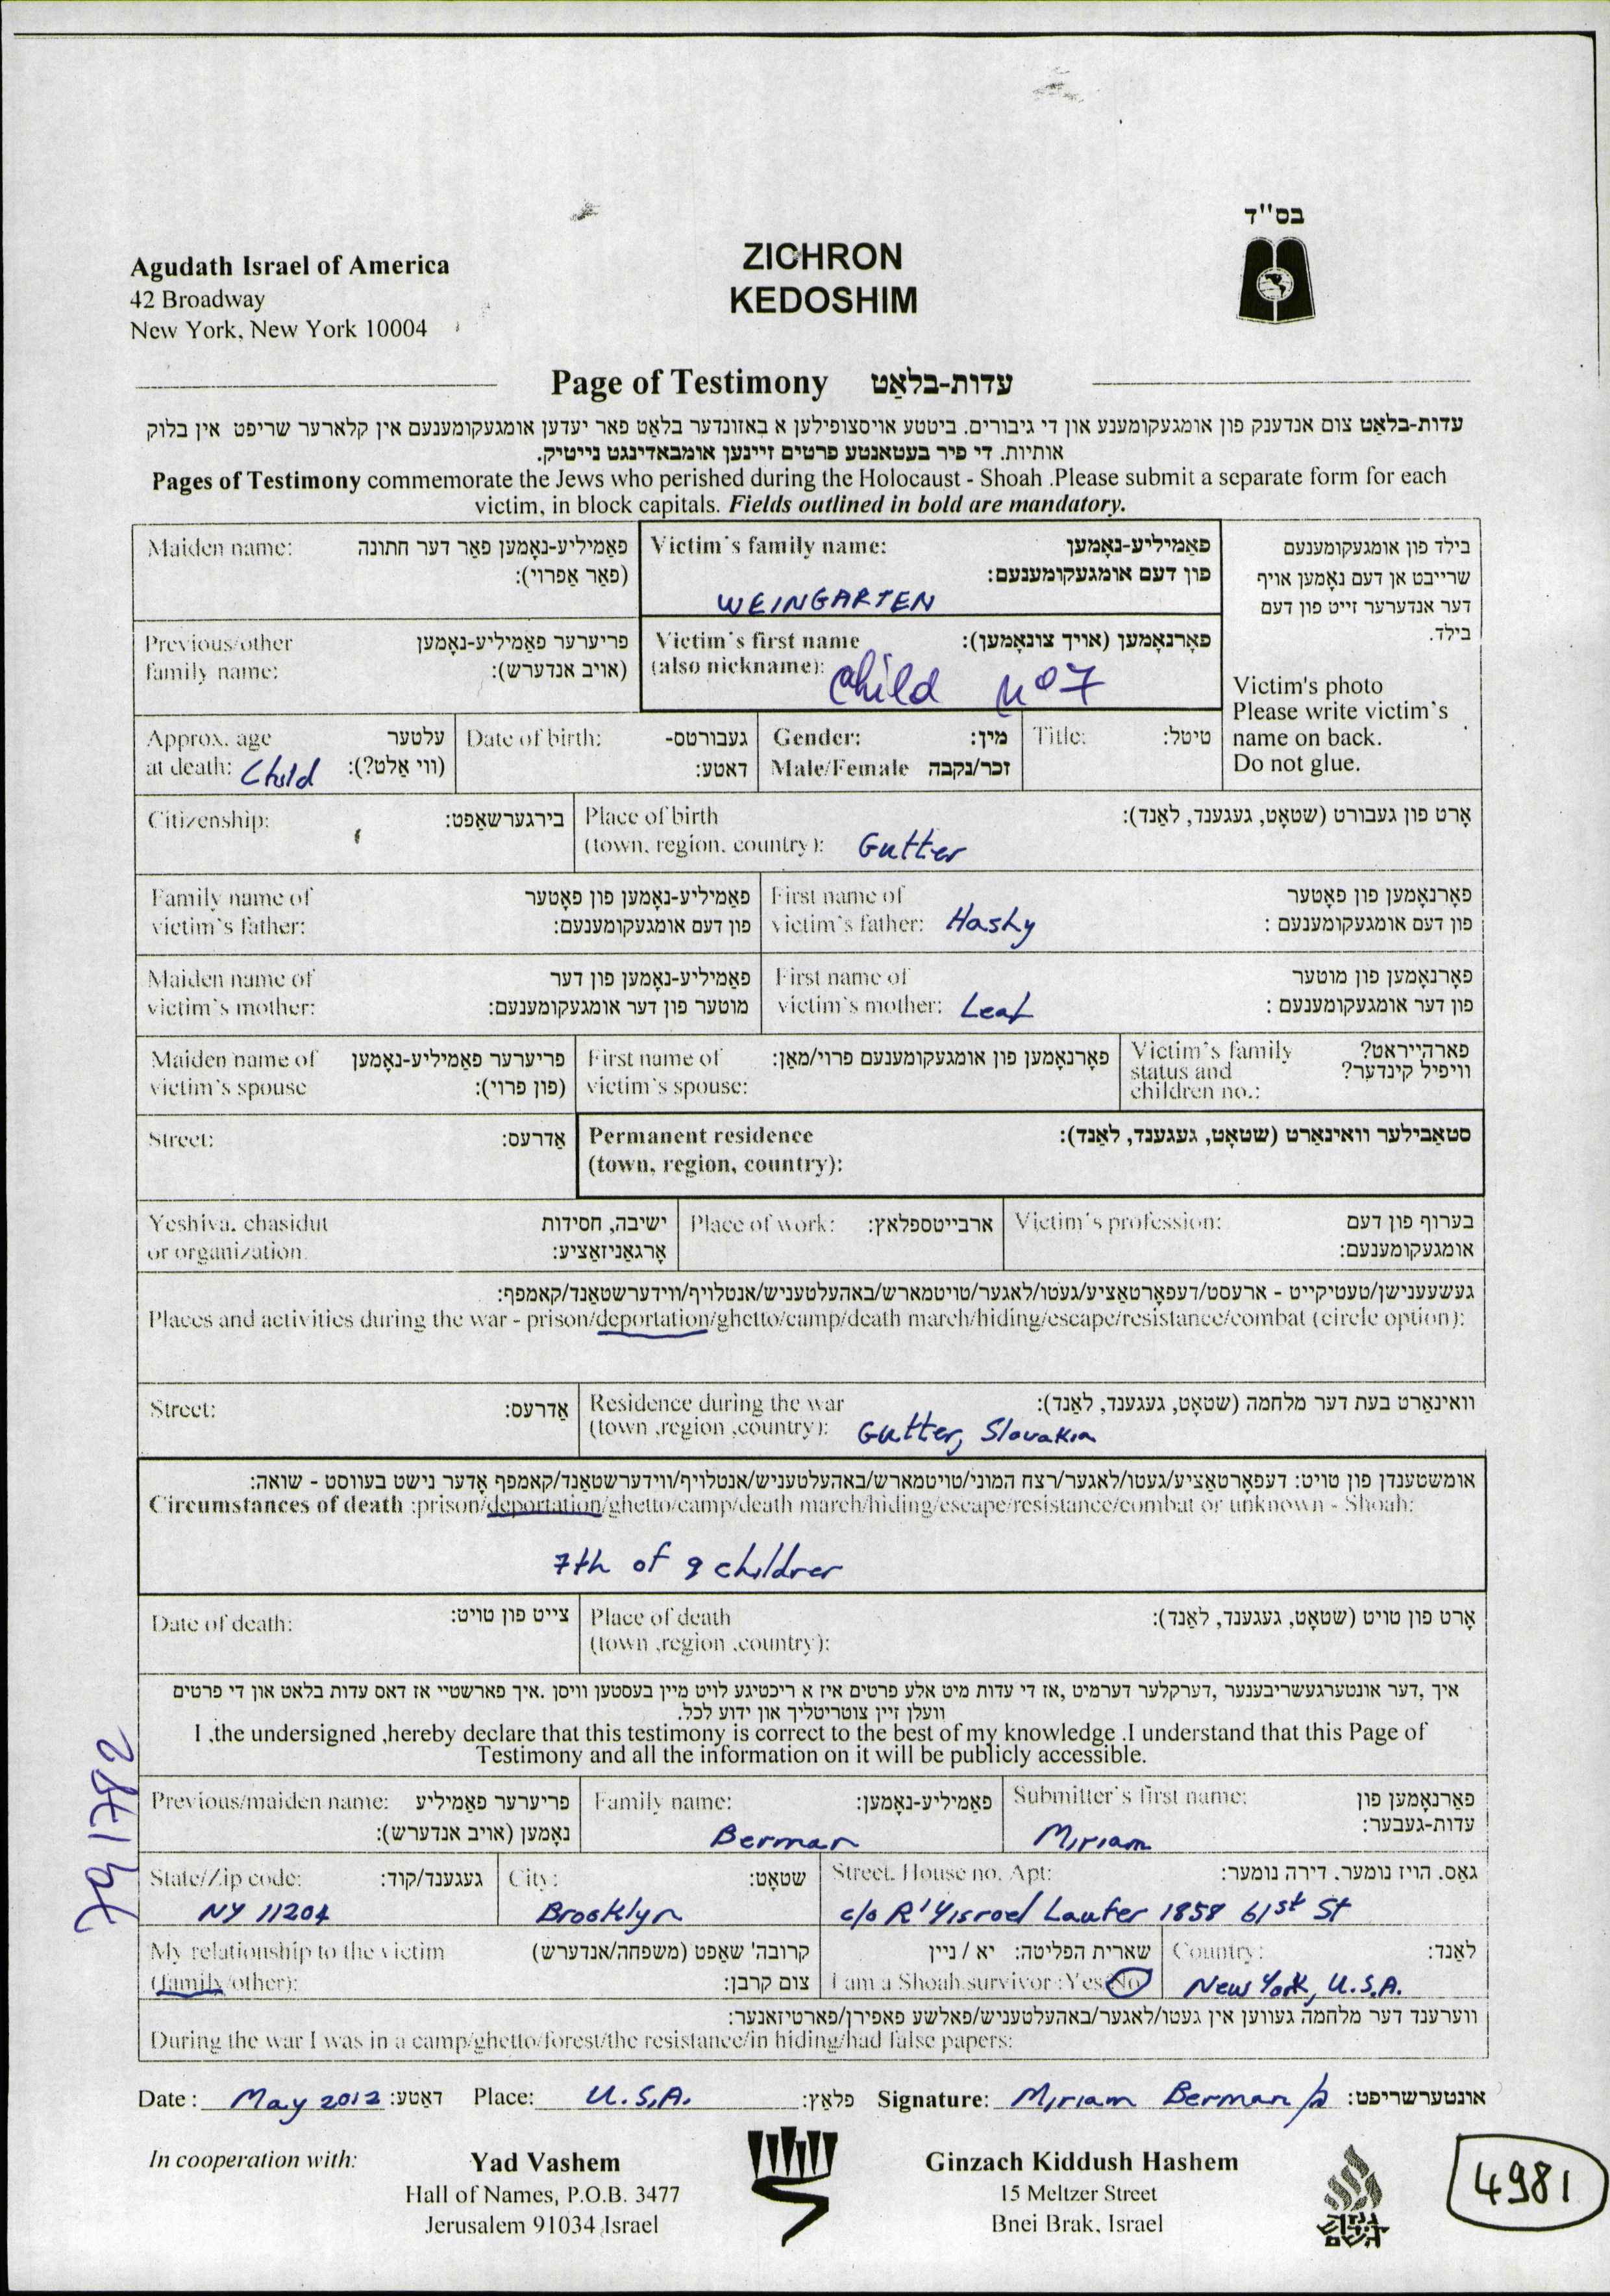 בס"ד
Agudath Israel of America
42 Broadway
New York, New York 10004
ZICHRON
KEDOSHIM
Page of Testimony עדות-בלאַט
עדות-בלאַט צום אנדענק פון אומגעקומענע און די גיבורים. ביטטע אויסצופילען א באזונדער בלאַט פאר יעדען אומגעקומענעם אין קלארער שריפט אין בלוק
אותיות. די פיר בעטאנטע פרטים זיינען אומבאדינגט נייטיק.
Pages of Testimony commemorate the Jews who perished during the Holocaust - Shoah .Please submit a separate form for each
victim, in block capitals. Fields outlined in bold are mandatory.
Maiden name: פאַמיליע-נאָמען פאַר דער חתונה
(פאַר אַפרוי):
Victim's family name: פאַמיליע-נאָמען
פון דעם אומגעקומענעם:
WEINGARTEN
בילד פון אומגעקומענעם
שרייבט אן דעם נאָמען אויף
דער אנדערער זייט פון דעם
בילד.
Previous/other פריערער פאַמיליע-נאָמען
family name: (אויב אנדערש):
Victim's first name פאָרנאָמען (אויך צונאָמען):
(also nickname): child No 7
Victim's photo
Please write victim's
name on back.
Do not glue.
Approx. age עלטער
at death: Child (ווי אַלט?):
Date of birth: געבורטס-
דאטע:
Gender: מין:
Male/Female זכר/נקבה
Title: טיטל:
Citizenship: בירגערשאַפט:
Place of birth אָרט פון געבורט (שטאָט, געגענד, לאַנד):
(town, region, country): Gutter
Family name of פאַמיליע-נאָמען פון פאָטער
victim's father: פון דעם אומגעקומענעם:
First name of פאָרנאָמען פון פאָטער
victim's father: Hashy פון דעם אומגעקומענעם :
Maiden name of פאַמיליע-נאָמען פון דער
victim's mother: מוטער פון דער אומגעקומענעם:
First name of פאָרנאָמען פון מוטער
victim's mother: Leah פון דער אומגעקומענעם :
Maiden name of פריערער פאַמיליע-נאָמען
victim's spouse (פון פרוי):
First name of פאָרנאָמען פון אומגעקומענעם פרוי/מאַן:
victim's spouse:
Victim's family פארהייראט?
status and וויפיל קינדער?
children no.:
Street: אַדרעס:
Permanent residence סטאַבילער וואינאַרט (שטאָט, געגענד, לאַנד):
(town, region, country):
Yeshiva, chasidut ישיבה, חסידות
or organization. אָרגאַניזאַציע:
Place of work: ארבייטספלאץ:
Victim's profession: בערוף פון דעם
אומגעקומענעם:
געשעענישן/טעטיקייט - ארעסט/דעפאָרטאַציע/געטו/לאגער/טויטמארש/באהעלטעניש/אנטלויף/ווידערשטאַנד/קאמפף:
Places and activities during the war - prison/deportation/ghetto/camp/death march/hiding/escape/resistance/combat (circle option):
Street: אַדרעס:
Residence during the war וואינאַרט בעת דער מלחמה (שטאָט, געגענד, לאַנד):
(town ,region ,country): Gutter, Slovakia
אומשטענדן פון טויט: דעפאָרטאַציע/געטו/לאגער/רצח המוני/טויטמארש/באהעלטעניש/אנטלויף/ווידערשטאַנד/קאמפף אָדער נישט בעוווסט - שואה:
Circumstances of death :prison/deportation/ghetto/camp/death march/hiding/escape/resistance/combat or unknown - Shoah:
7th of 9 children
Date of death: צייט פון טויט:
Place of death אָרט פון טויט (שטאָט, געגענד, לאַנד):
(town ,region ,country):
איך ,דער אונטערגעשריבענער ,דערקלער דערמיט ,אז די עדות מיט אלע פרטים איז א ריכטיגע לויט מיין בעסטען וויסן .איך פארשטיי אז דאס עדות בלאט און די פרטים
וועלן זיין צוטריטליך און ידוע לכל.
I ,the undersigned ,hereby declare that this testimony is correct to the best of my knowledge .I understand that this Page of
Testimony and all the information on it will be publicly accessible.
791782
Previous/maiden name: פריערער פאַמיליע
נאָמען (אויב אנדערש):
Family name: פאַמיליע-נאָמען:
Berman
Submitter's first name: פאָרנאָמען פון
עדות-געבער:
Miriam
State/Zip code: געגענד/קוד:
NY 11204
City: שטאָט:
Brooklyn
Street, House no, Apt: גאַס. הויז נומער. דירה נומער:
c/o R' Yisroel Laufer 1858 61st St
My relationship to the victim קרובה' שאַפט (משפחה/אנדערש)
(family/other): צום קרבן:
שארית הפליטה: יא / ניין
I am a Shoah survivor :Yes/No
Country: לאַנד:
New York, U.S.A.
ווערענד דער מלחמה געווען אין געטו/לאגער/באהעלטעניש/פאלשע פאפירן/פארטיזאנער:
During the war I was in a camp/ghetto/forest/the resistance/in hiding/had false papers:
Date : May 2012 דאטע: Place: U.S.A. פלאַץ: Signature: Miriam Berman אונטערשריפט:
In cooperation with:
Yad Vashem
Hall of Names, P.O.B. 3477
Jerusalem 91034 Israel
Ginzach Kiddush Hashem
15 Meltzer Street
Bnei Brak, Israel
4981